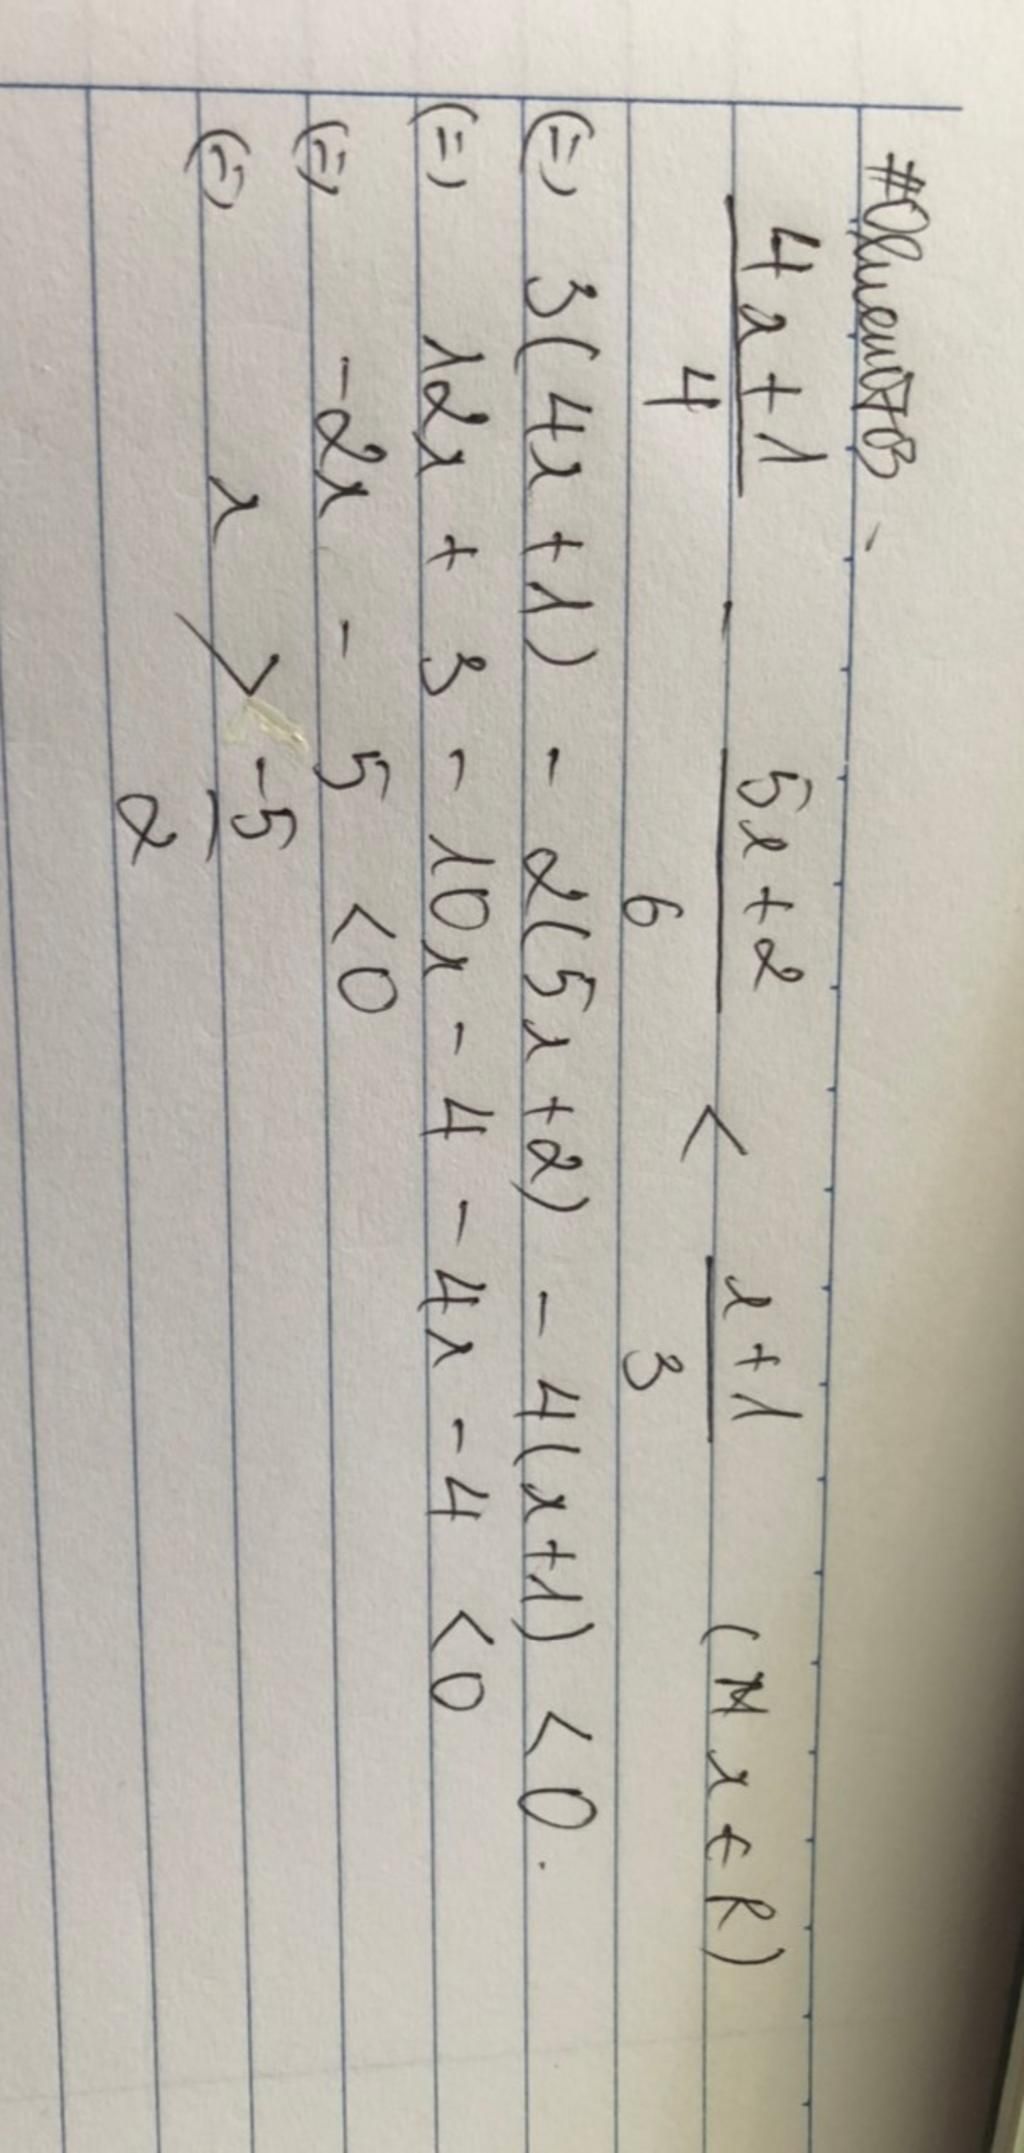 4x+1/4 - 5x+2/6 < x+1/3 (∀ x ∈ R)
(=) 3(4x+1) - 2(5x+2) - 4(x+1) < 0.
(=) 12x + 3 - 10x - 4 - 4x - 4 < 0
(=) -2x - 5 < 0
(=) x > -5/2